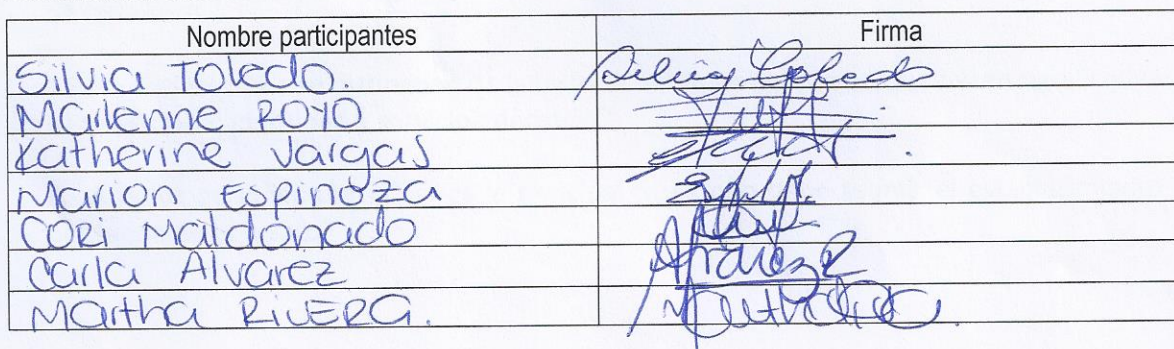 Nombre participantes Firma
Silvia Toledo. Silvia Toledo
Marlenne ROYO
Katherine Vargas
Marion Espinoza
CORi Maldonado
Carla Alvarez
Martha RiVERA.